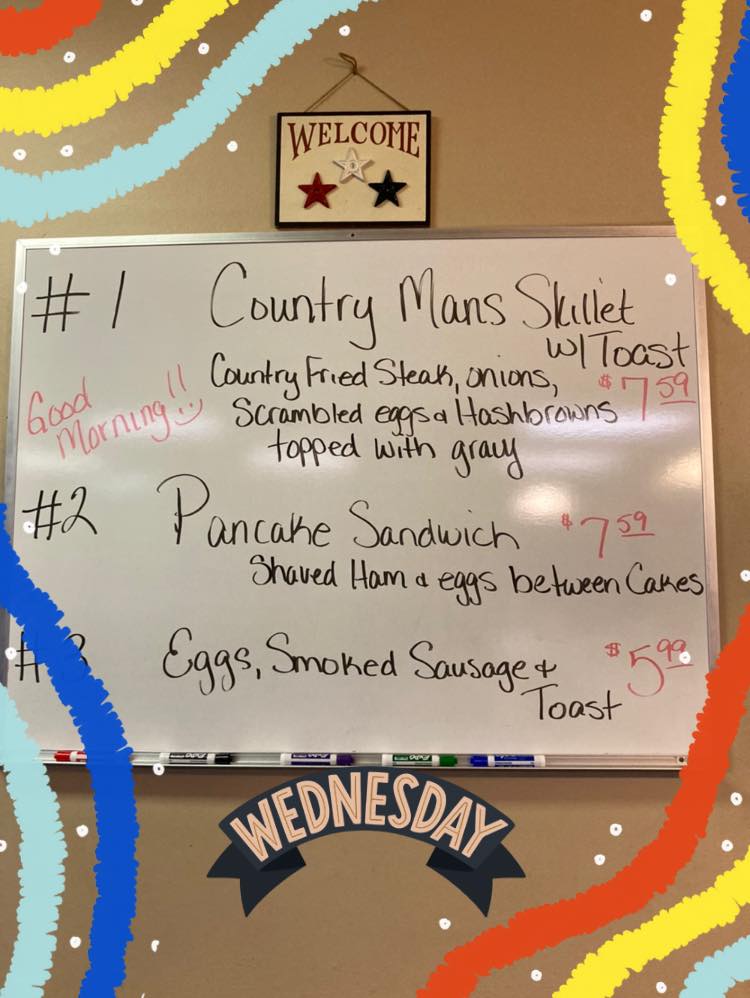 WELCOME
#1 Country Mans Skillet
w/Toast
Country Fried Steak, onions, $7.59
Scrambled eggs & Hashbrowns
topped with gravy
Good
Morning!!
#2 Pancake Sandwich $7.59
Shaved Ham & eggs between Cakes
#3 Eggs, Smoked Sausage & $5.99
Toast
WEDNESDAY